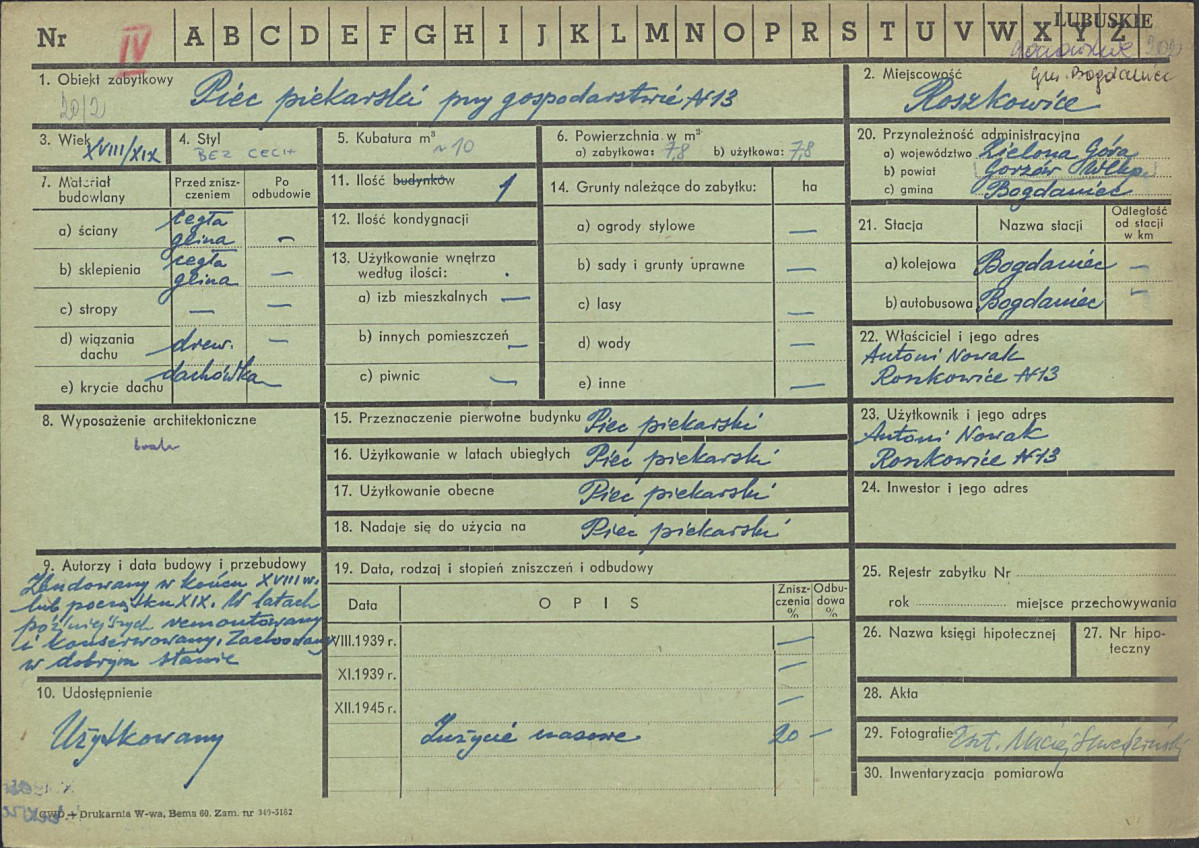 Nr IV A B C D E F G H I J K L M N O P R S T U V W X Y Z
LUBUSKIE
gm. Bogdaniec
1. Obiekt zabytkowy
Piec piekarski przy gospodarstwie N13
2. Miejscowość
Roszkowice
3. Wiek XVIII/XIX
4. Styl
BEZ CECH
5. Kubatura m³
~10
6. Powierzchnia w m²
a) zabytkowa: 7,8 b) użytkowa: 7,8
20. Przynależność administracyjna
a) województwo Zielona Góra
b) powiat Gorzów Wlkp.
c) gmina Bogdaniec
7. Materiał budowlany
Przed zniszczeniem
Po odbudowie
a) ściany cegła glina –
b) sklepienia cegła glina –
c) stropy – –
d) wiązania dachu drew. –
e) krycie dachu dachówka
11. Ilość budynków 1
12. Ilość kondygnacji
13. Użytkowanie wnętrza według ilości:
a) izb mieszkalnych –
b) innych pomieszczeń –
c) piwnic –
14. Grunty należące do zabytku: ha
a) ogrody stylowe –
b) sady i grunty uprawne –
c) lasy –
d) wody –
e) inne –
21. Stacja
Nazwa stacji
Odległość od stacji w km
a) kolejowa Bogdaniec –
b) autobusowa Bogdaniec –
22. Właściciel i jego adres
Antoni Nowak
Roszkowice N13
8. Wyposażenie architektoniczne
brak
15. Przeznaczenie pierwotne budynku Piec piekarski
16. Użytkowanie w latach ubiegłych Piec piekarski
17. Użytkowanie obecne Piec piekarski
18. Nadaje się do użycia na Piec piekarski
23. Użytkownik i jego adres
Antoni Nowak
Roszkowice N13
24. Inwestor i jego adres
9. Autorzy i data budowy i przebudowy
Zbudowany w końcu XVIII w.
lub początku XIX. W latach
późniejszych remontowany
i konserwowany. Zachowany
w dobrym stanie
10. Udostępnienie
Użytkowany
19. Data, rodzaj i stopień zniszczeń i odbudowy
Data
OPIS
Zniszczenia %
Odbudowa %
VIII.1939 r. –
XI.1939 r. –
XII.1945 r. –
Zużycie masowe 20 –
25. Rejestr zabytku Nr
rok miejsce przechowywania
26. Nazwa księgi hipotecznej
27. Nr hipoteczny
28. Akta
29. Fotografie Maciej
30. Inwentaryzacja pomiarowa
GWD – Drukarnia W-wa, Bema 60. Zam. nr 349-5162